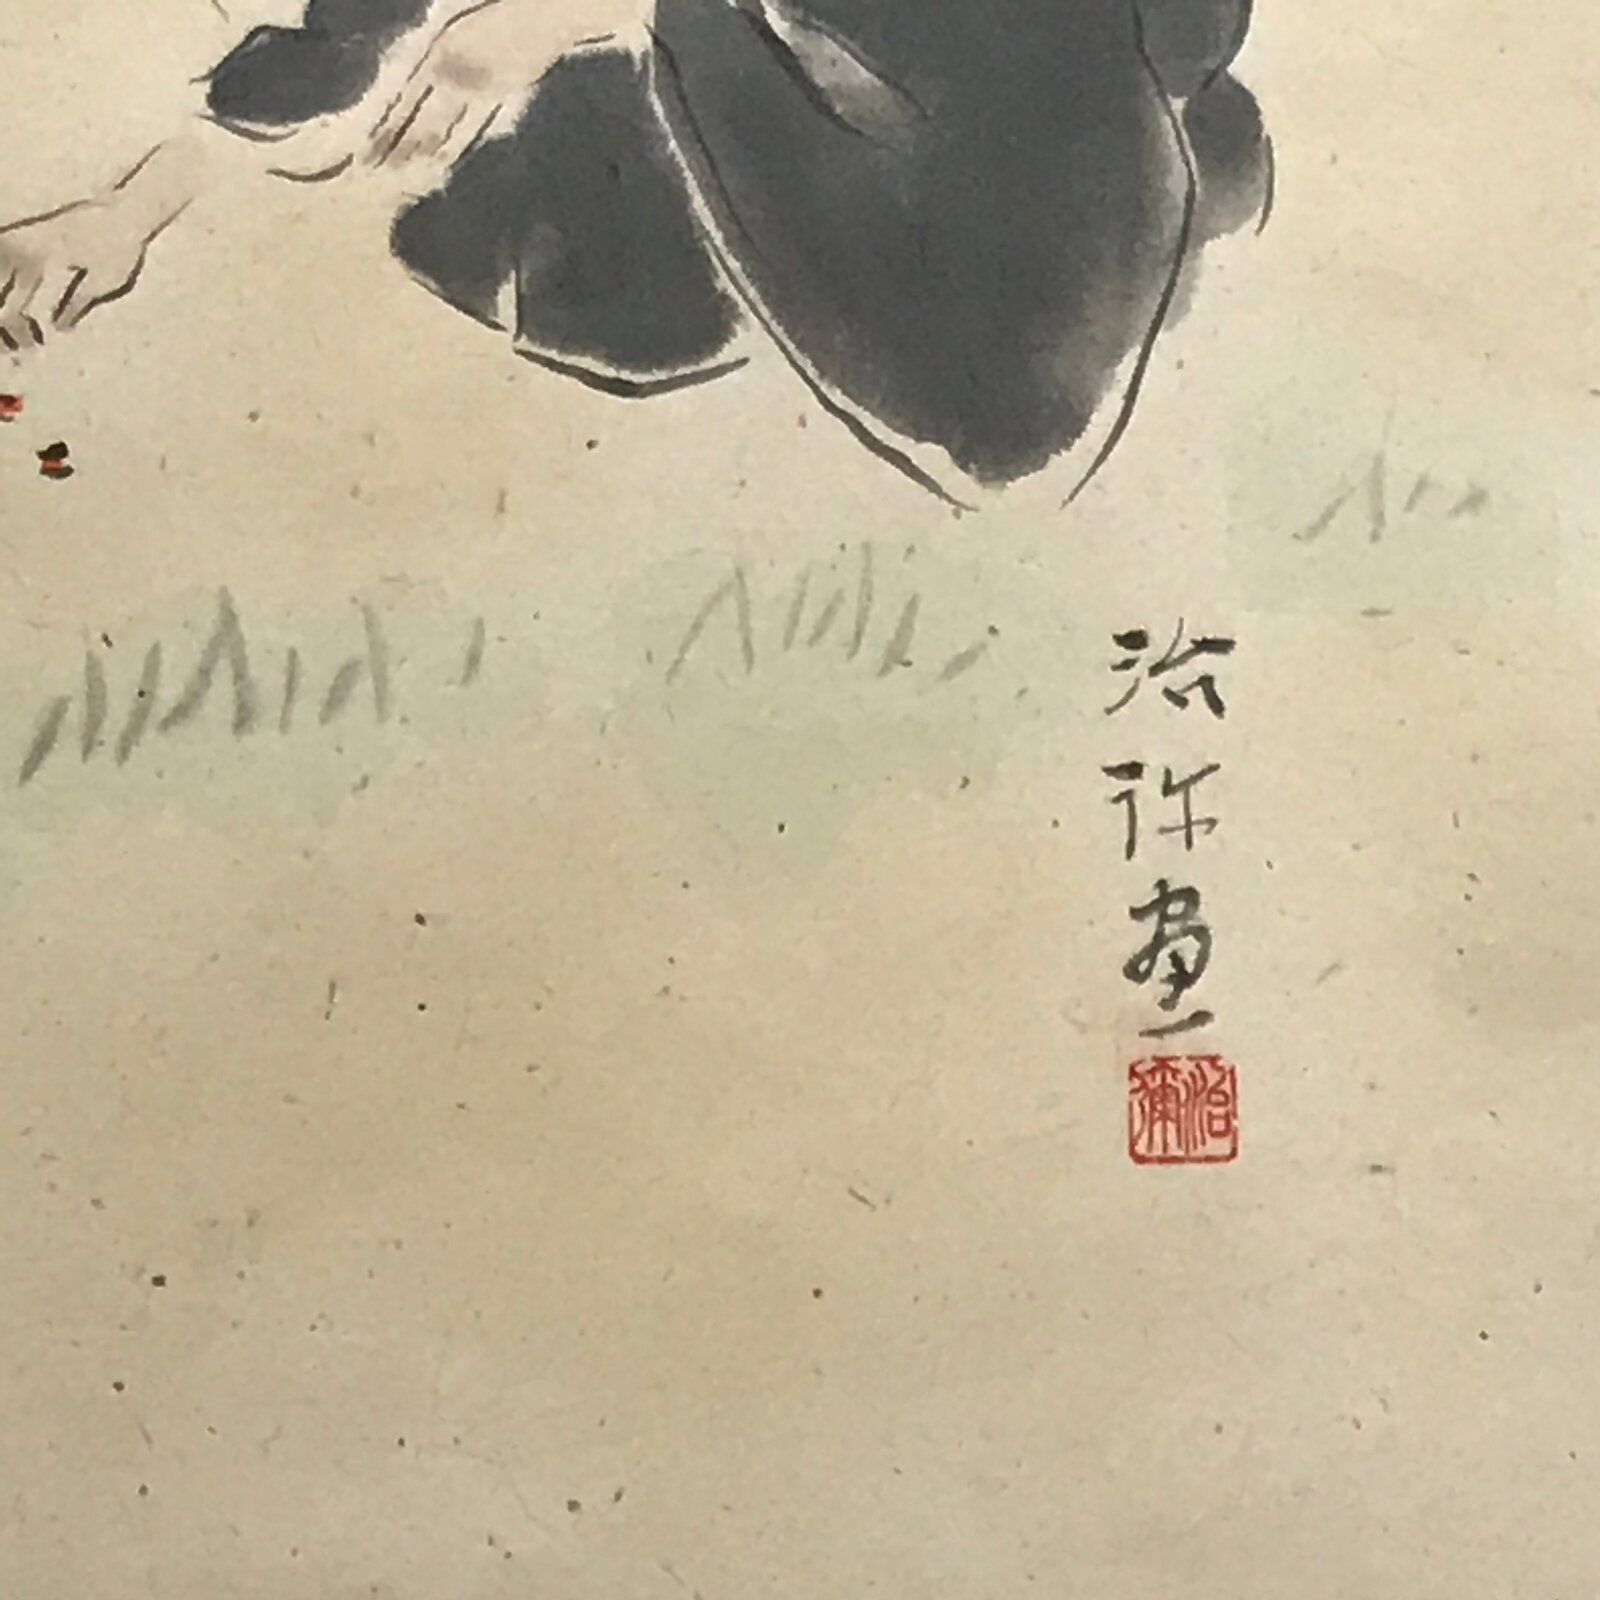 治弥畫
治彌